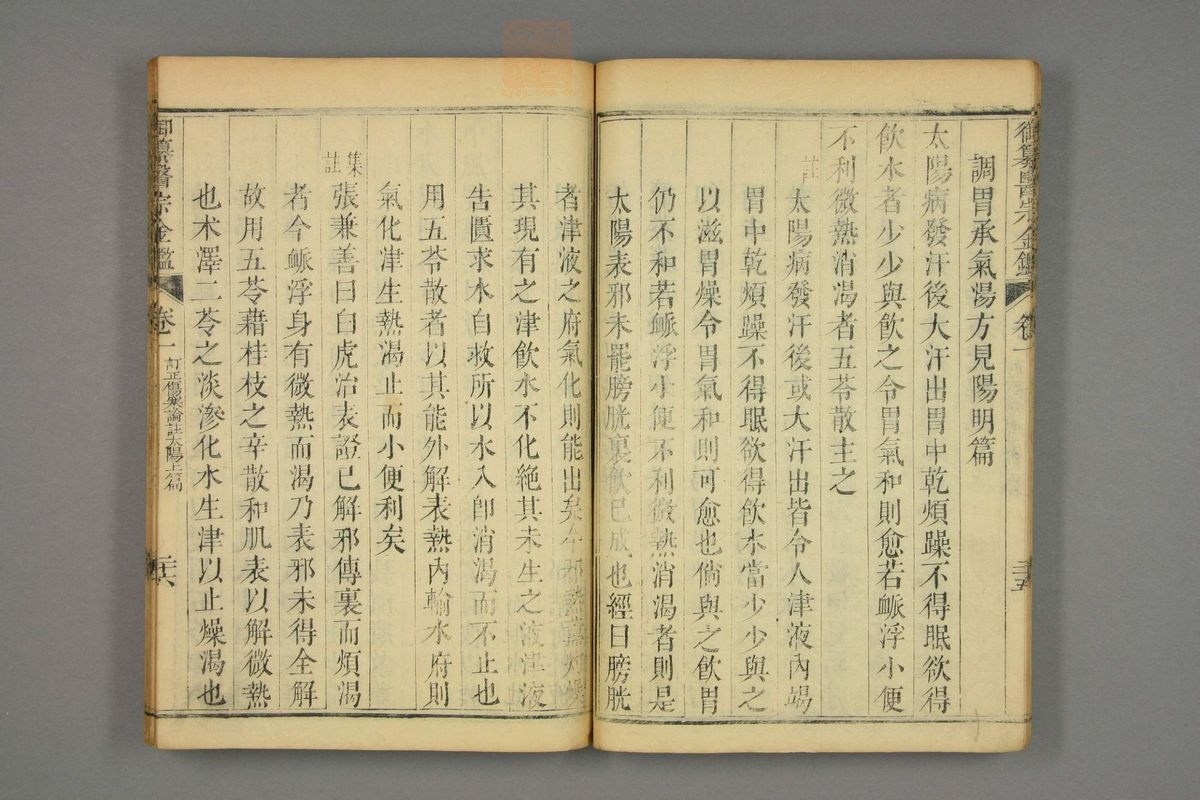 御纂醫宗金鑑 卷一 三五
調胃承氣湯方見陽明篇
太陽病發汗後大汗出胃中乾煩躁不得眠欲得
飲水者少少與飲之令胃氣和則愈若脈浮小便
不利微熱消渴者五苓散主之
註
太陽病發汗後或大汗出皆令人津液內竭
胃中乾煩躁不得眠欲得飲水當少少與之
以滋胃燥令胃氣和則可愈也倘與之飲胃
仍不和若脈浮小便不利微熱消渴者則是
太陽表邪未罷膀胱裏飲已成也經曰膀胱
者津液之府氣化則能出矣今邪熱熏灼燥
其現有之津飲水不化絕其未生之液津液
告匱求水自救所以水入即消渴而不止也
用五苓散者以其能外解表熱內輸水府則
氣化津生熱渴止而小便利矣
集註
張兼善曰白虎治表證已解邪傳裏而煩渴
者今脈浮身有微熱而渴乃表邪未得全解
故用五苓藉桂枝之辛散和肌表以解微熱
也术澤二苓之淡滲化水生津以止燥渴也
御纂醫宗金鑑 卷一 訂正傷寒論註太陽上篇 三六